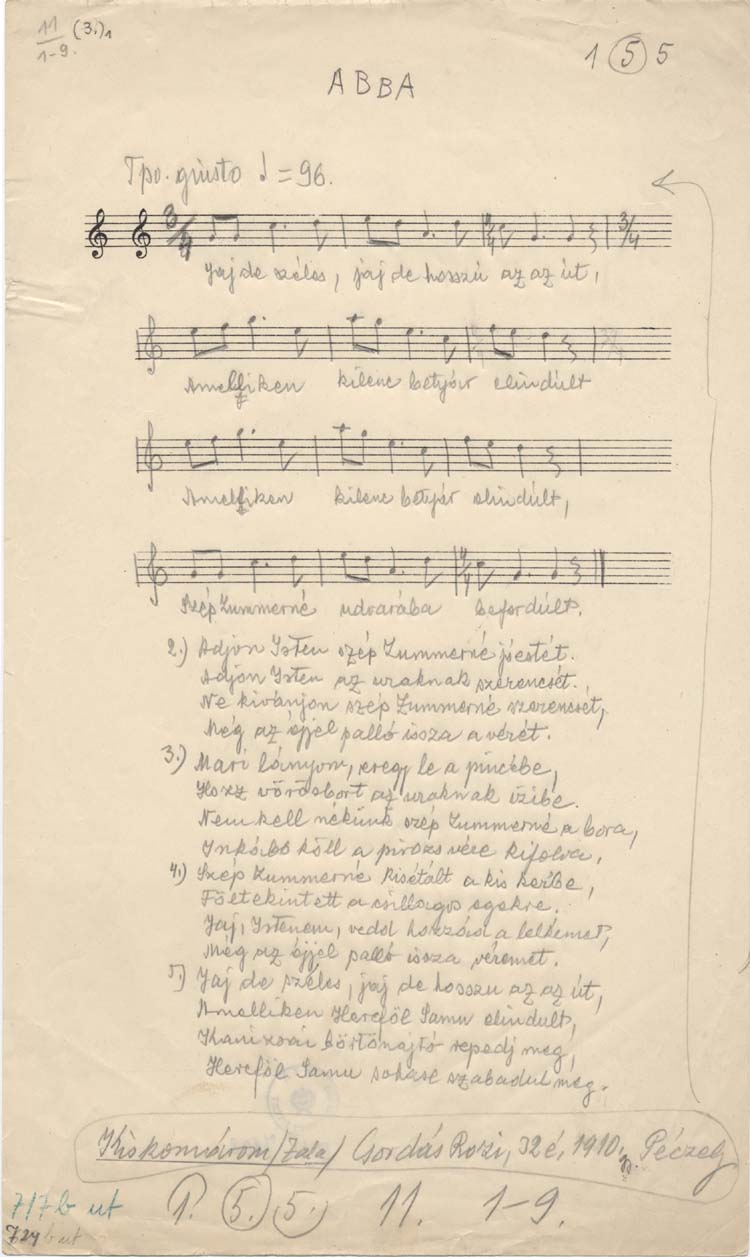 11 (3.)1
1-9.
1 5 5
ABBA
Tpo. giusto ♩ = 96.
3/4 4/4 3/4
Jaj de széles, jaj de hosszú az az út,
Amelliken kilenc betyár elindúlt
Amelliken kilenc betyár elindúlt,
4/4
Szép Zummerné udvarába befordúlt.
2.) Adjon Isten szép Zummerné jóestét.
Adjon Isten az uraknak szerencsét.
Ne kivánjon szép Zummerné szerencsét,
Még az éjjel palló issza a vérét.
3.) Mari lányom, eregy le a pincébe,
Hozz vörösbort az uraknak izibe.
Nem kell nékünk szép Zummerné a bora,
Inkább köll a pirozs vére kifolva,
4.) Szép Zummerné kisétált a kis kerbe,
Föltekintett a csillagos egekre.
Jaj, Istenem, vedd hozzád a lelkemet,
Még az éjjel palló issza véremet.
5.) Jaj de széles, jaj de hosszu az az út,
Amelliken Hereföl Samu elindult,
Kanizsai börtönajtó repedj meg,
Hereföl Samu sohase szabadul meg.
Kiskomárom /Zala/ Csordás Rozi, 32 é, 1910, Péczely
717b ut 1. 5. 5. 11. 1-9.
724 b ut